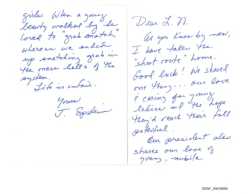 girls. When a young
beauty walked by "he
loved to "grab snatch"
whereas we ended
up snatching grub in
the mess halls of the
system.
Life is unfair.
Yours
J.
Dear L. N.
As you know by now,
I have taken the
"short route" home.
Good luck! We shared
one thing... our love
& caring for young
and the hope
they'd reach their full
potential.
Our president also
shares our love of
young, nubile